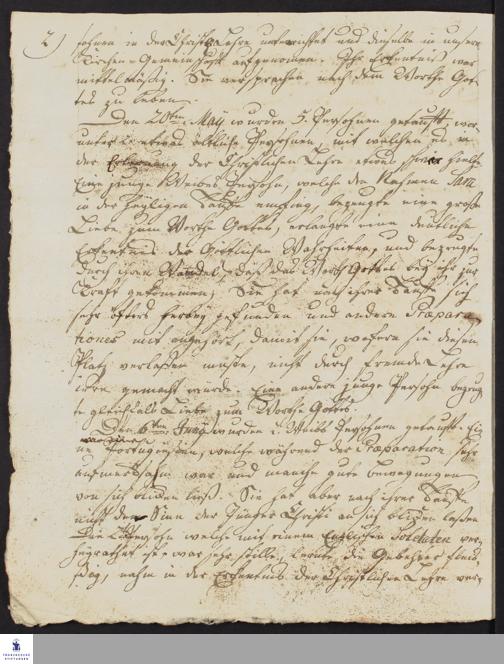 2) sohnen in der Christl. Lehre unterrichtet und dieselbe in unsere
Kirchen-Gemeinschaft aufgenommen. Ihr Erkentnis war
mittelmäßig. Sie versprachen nach dem Worthe Got-
tes zu leben.
Den 20ten Maÿ wurden 5. Persohnen getaufft, wor-
unter 2 etwas ältliche Persohnen, mit welchen es in
der Erlernung der Christlichen Lehre etwas schwer hielte
Eine junge Weibes Persohn, welche den Nahmen Sara
in der heyligen Taufe empfing, bezeugte eine große
Liebe zum Worthe Gottes, erlangte eine deutliche
Erkentnis der Göttlichen Wahrheiten, und bezeugte
durch ihren Wandel, daß das Worth Gottes beÿ ihr zur
Krafft gekommen, Sie hat nach ihrer Taufe sich
sehr öfters herbey gefunden und andern Præpara-
tiones mit angehört, damit sie, wofern sie diesen
Platz verlaßen müste, nicht durch fremde Lehre
irre gemacht würde. Eine andere junge Persohn bezeug-
te gleichfals Liebe zum Worthe Gottes.
Den 6ten Junÿ wurden 2. Weibs Persohnen getauft. Ei-
ne Portugiesin, welche während der Præparation sehr
aufmercksahm war und manche gute bewegungen
von sich blicken ließ. Sie hat aber nach ihrer Taufe
nicht den Sinn der Jünger Christi an sich blicken laßen
Die Persohn welche mit einem Englischen Soldaten ver-
heyrathet ist war sehr stille, lernte die Gebether fleis-
sig, nahm in der Erkentnis der Christlichen Lehre der-
FRANCKESCHE
STIFTUNGEN